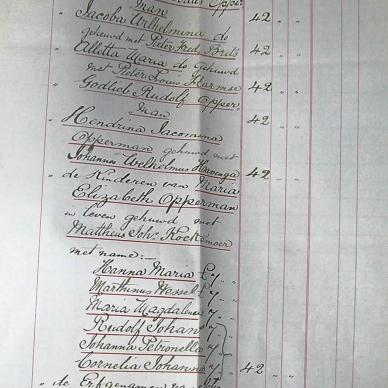 man
Jacoba Wilhelmina do 42 " "
gehuwd met Pieter Fred. Brits
" Aletta Maria do gehuwd 42 " "
met Pieter Louis Harmse
" Godlieb Rudolf Opper 42 " "
man
" Hendrina Jacomina 42 " "
Opperman gehuwd met
Johannes Welhelmus Havenga 42 " "
" de Kinderen van Maria
Elizabeth Opperman
in leven gehuwd met
Mattheus Joh. Kock
met name:—
Hanna Maria £7 " "
Marthinus Wessel £7 " "
Maria Magdalena 7 " "
Rudolf Johan 7 " "
Johanna Petronella 7 " "
Cornelia Johanna 7 " " 42 " "
" de Erfgenamen van